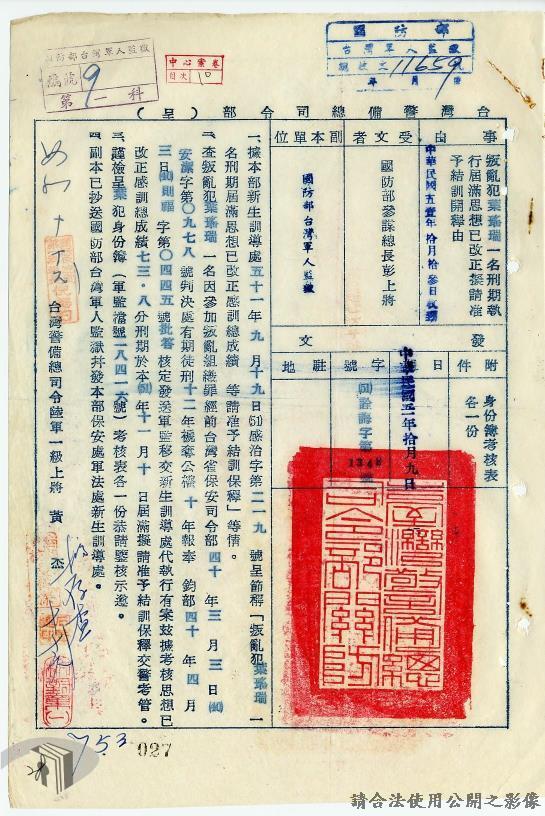 國防部台灣軍人監獄
編號 9
第一科
中心案卷
目次 10
國防部
台灣軍人監獄
總收文11659
年 月 日
台灣警備總司令部(呈)
事由
叛亂犯葉瑤瑞一名刑期執
行屆滿思想已改正擬請准
予結訓開釋由
中華民國五壹年拾月拾參日收
受文者
國防部參謀總長彭上將
副本單位
國防部台灣軍人監獄
發文
附件
身份簿考核表
各一份
日期
中華民國五一年拾月九日
字號
(51)詮誨字第 1348 號
駐地
台灣警備總司令部關防
一、據本部新生訓導處五十一年九月十九日(51)感治字第二一九號呈節稱「叛亂犯葉瑤瑞一
名刑期屆滿思想已改正感訓總成績 等請准予結訓保釋」等情。
二、查叛亂犯葉瑤瑞一名因參加叛亂組織罪經前台灣省保安司令部四十年三月三日(40)
安潔字第〇九七八號判決處有期徒刑十二年褫奪公權十年報奉 鈞部四十年四月
三日(40)則福字第〇四四五號批答核定發送軍監移交新生訓導處代執行有案茲據考核思想已
改正感訓總成績七三.八分刑期於本(51)年十一月十日屆滿擬請准予結訓保釋交警考管。
三、謹檢呈葉犯身份簿(軍監檔號一八四一六號)考核表各一份恭請鑒核示遵。
四、副本已抄送國防部台灣軍人監獄并發本部保安處軍法處新生訓導處。
台灣警備總司令陸軍一級上將 黃杰
753
027
28
請合法使用公開之影像